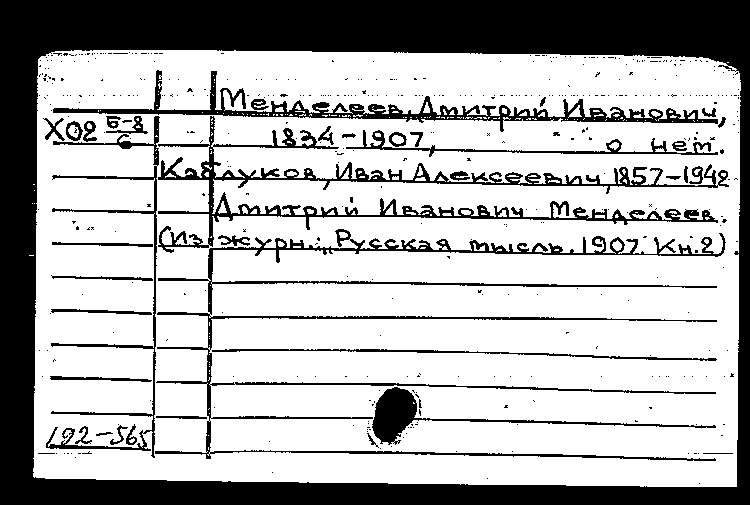 Менделеев, Дмитрий Иванович,
Х02 Б-8/6 1834-1907, о нем.
Каблуков, Иван Алексеевич, 1857-1942
Дмитрий Иванович Менделеев.
(Из журн.: „Русская мысль. 1907. Кн.2).
192-565